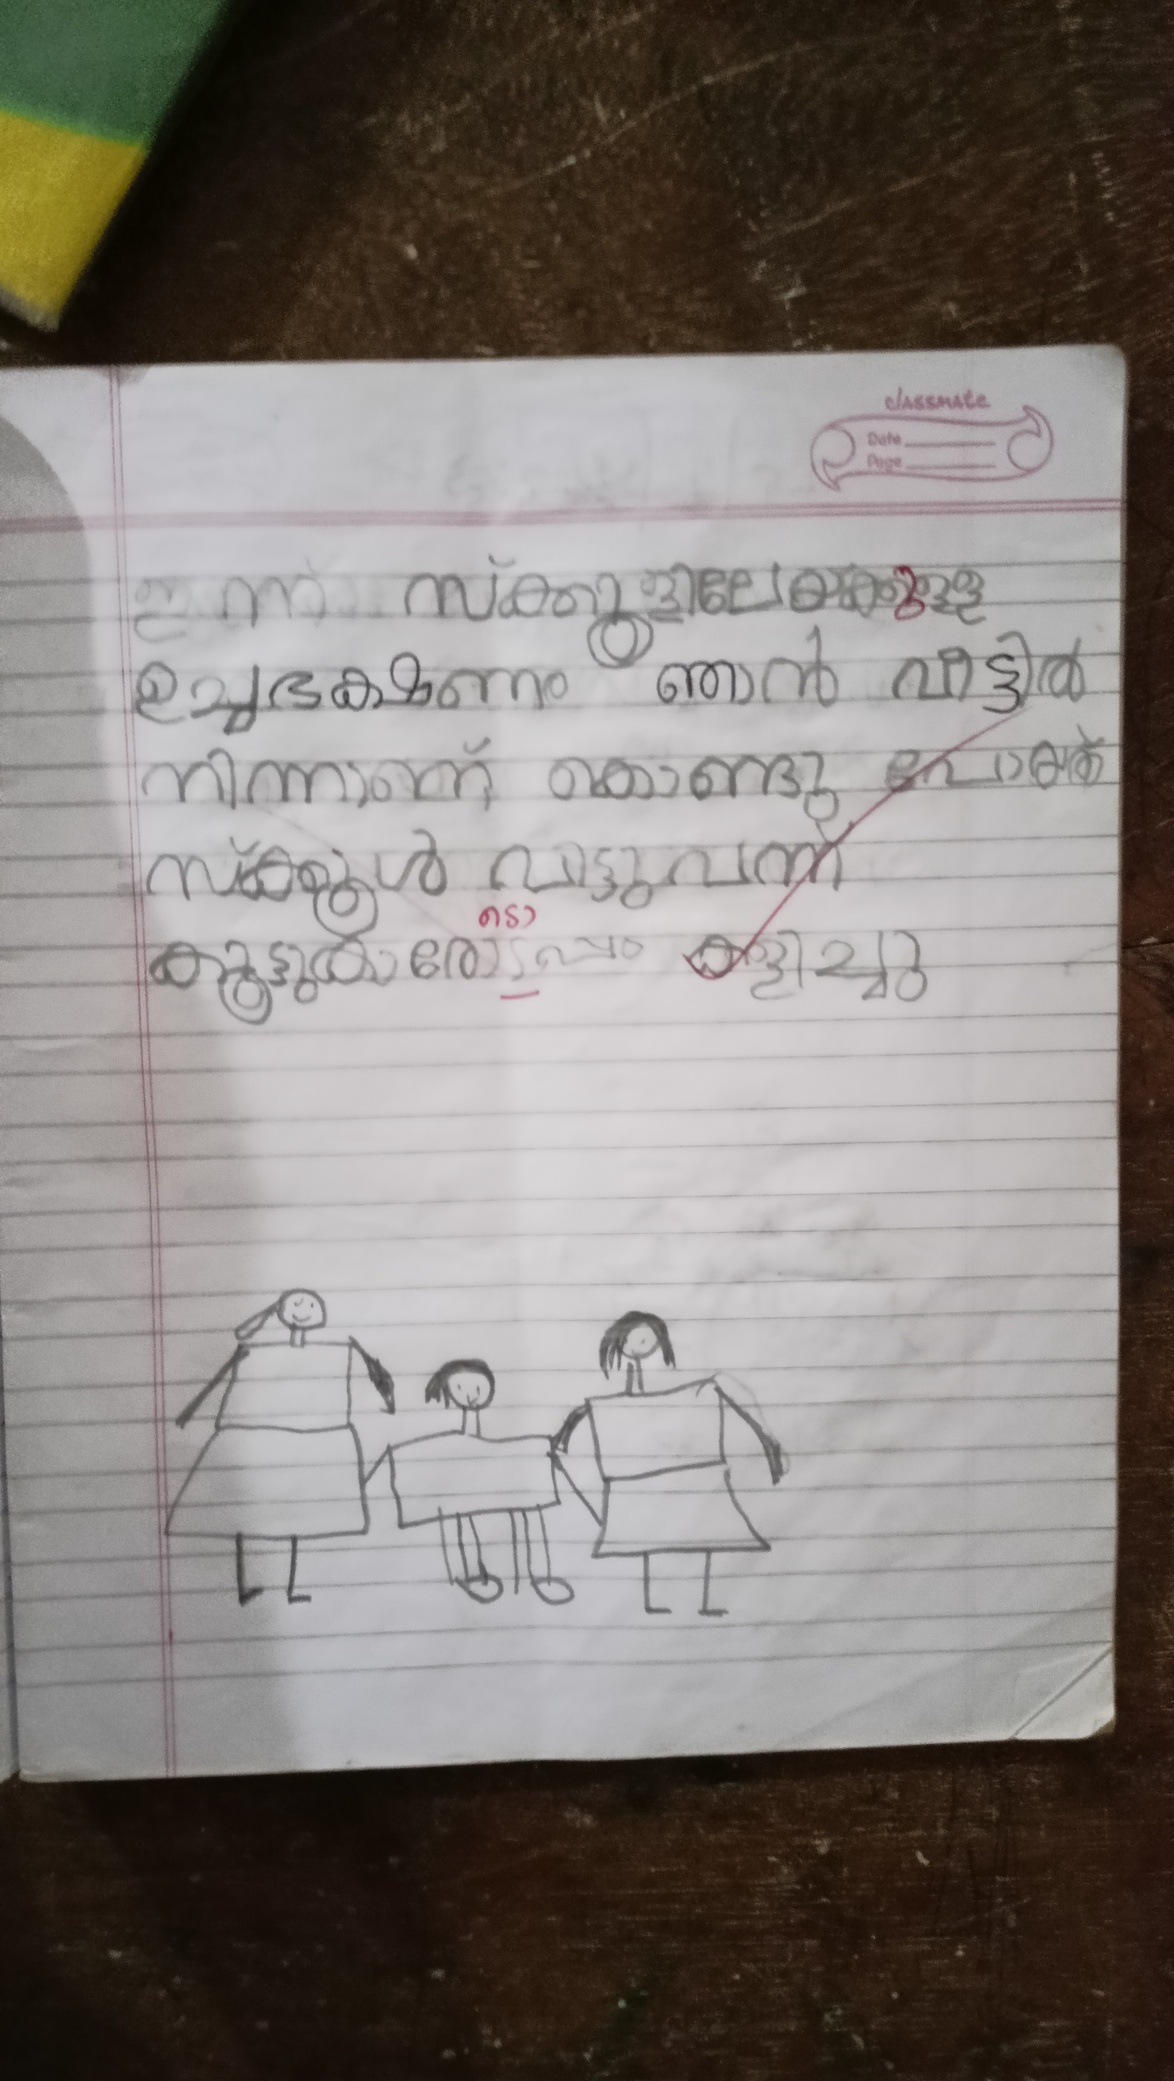 classmate
Date
Page
ഇന്ന് സ്ക്കൂളിലേയ്ക്കുള്ള
ഉച്ചഭക്ഷണം ഞാൻ വീട്ടിൽ
നിന്നാണ് കൊണ്ടു പോയത്
സ്ക്കൂൾ വിട്ടുവന്ന്
ടൊ
കൂട്ടുകാരോടപ്പം കളിച്ചു